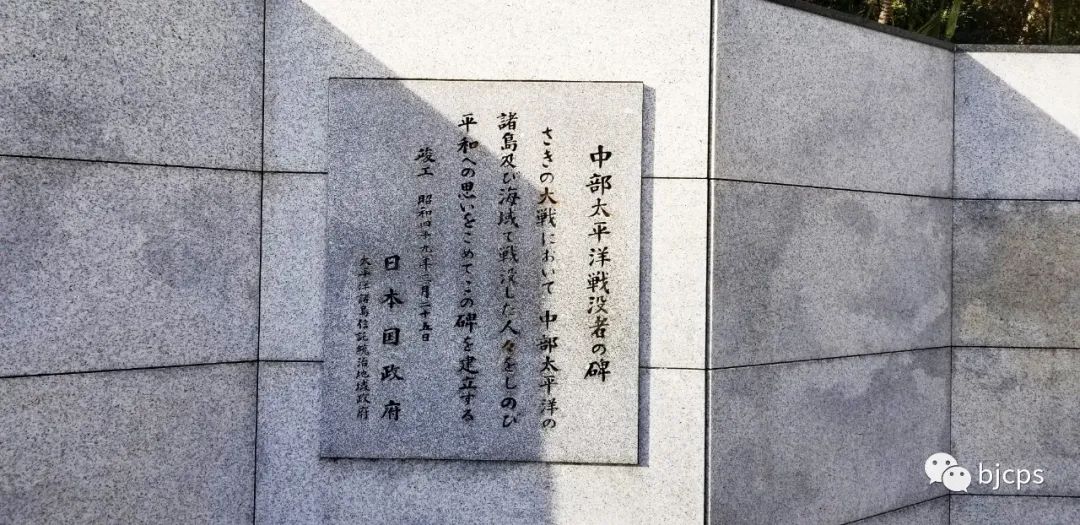 中部太平洋戦没者の碑
さきの大戦において 中部太平洋の
諸島及び海域で戦没した人々をしのび
平和への思いをこめて、この碑を建立する
竣工 昭和四十九年三月二十五日
日本国政府
太平洋諸島信託統治地域政府
bjcps